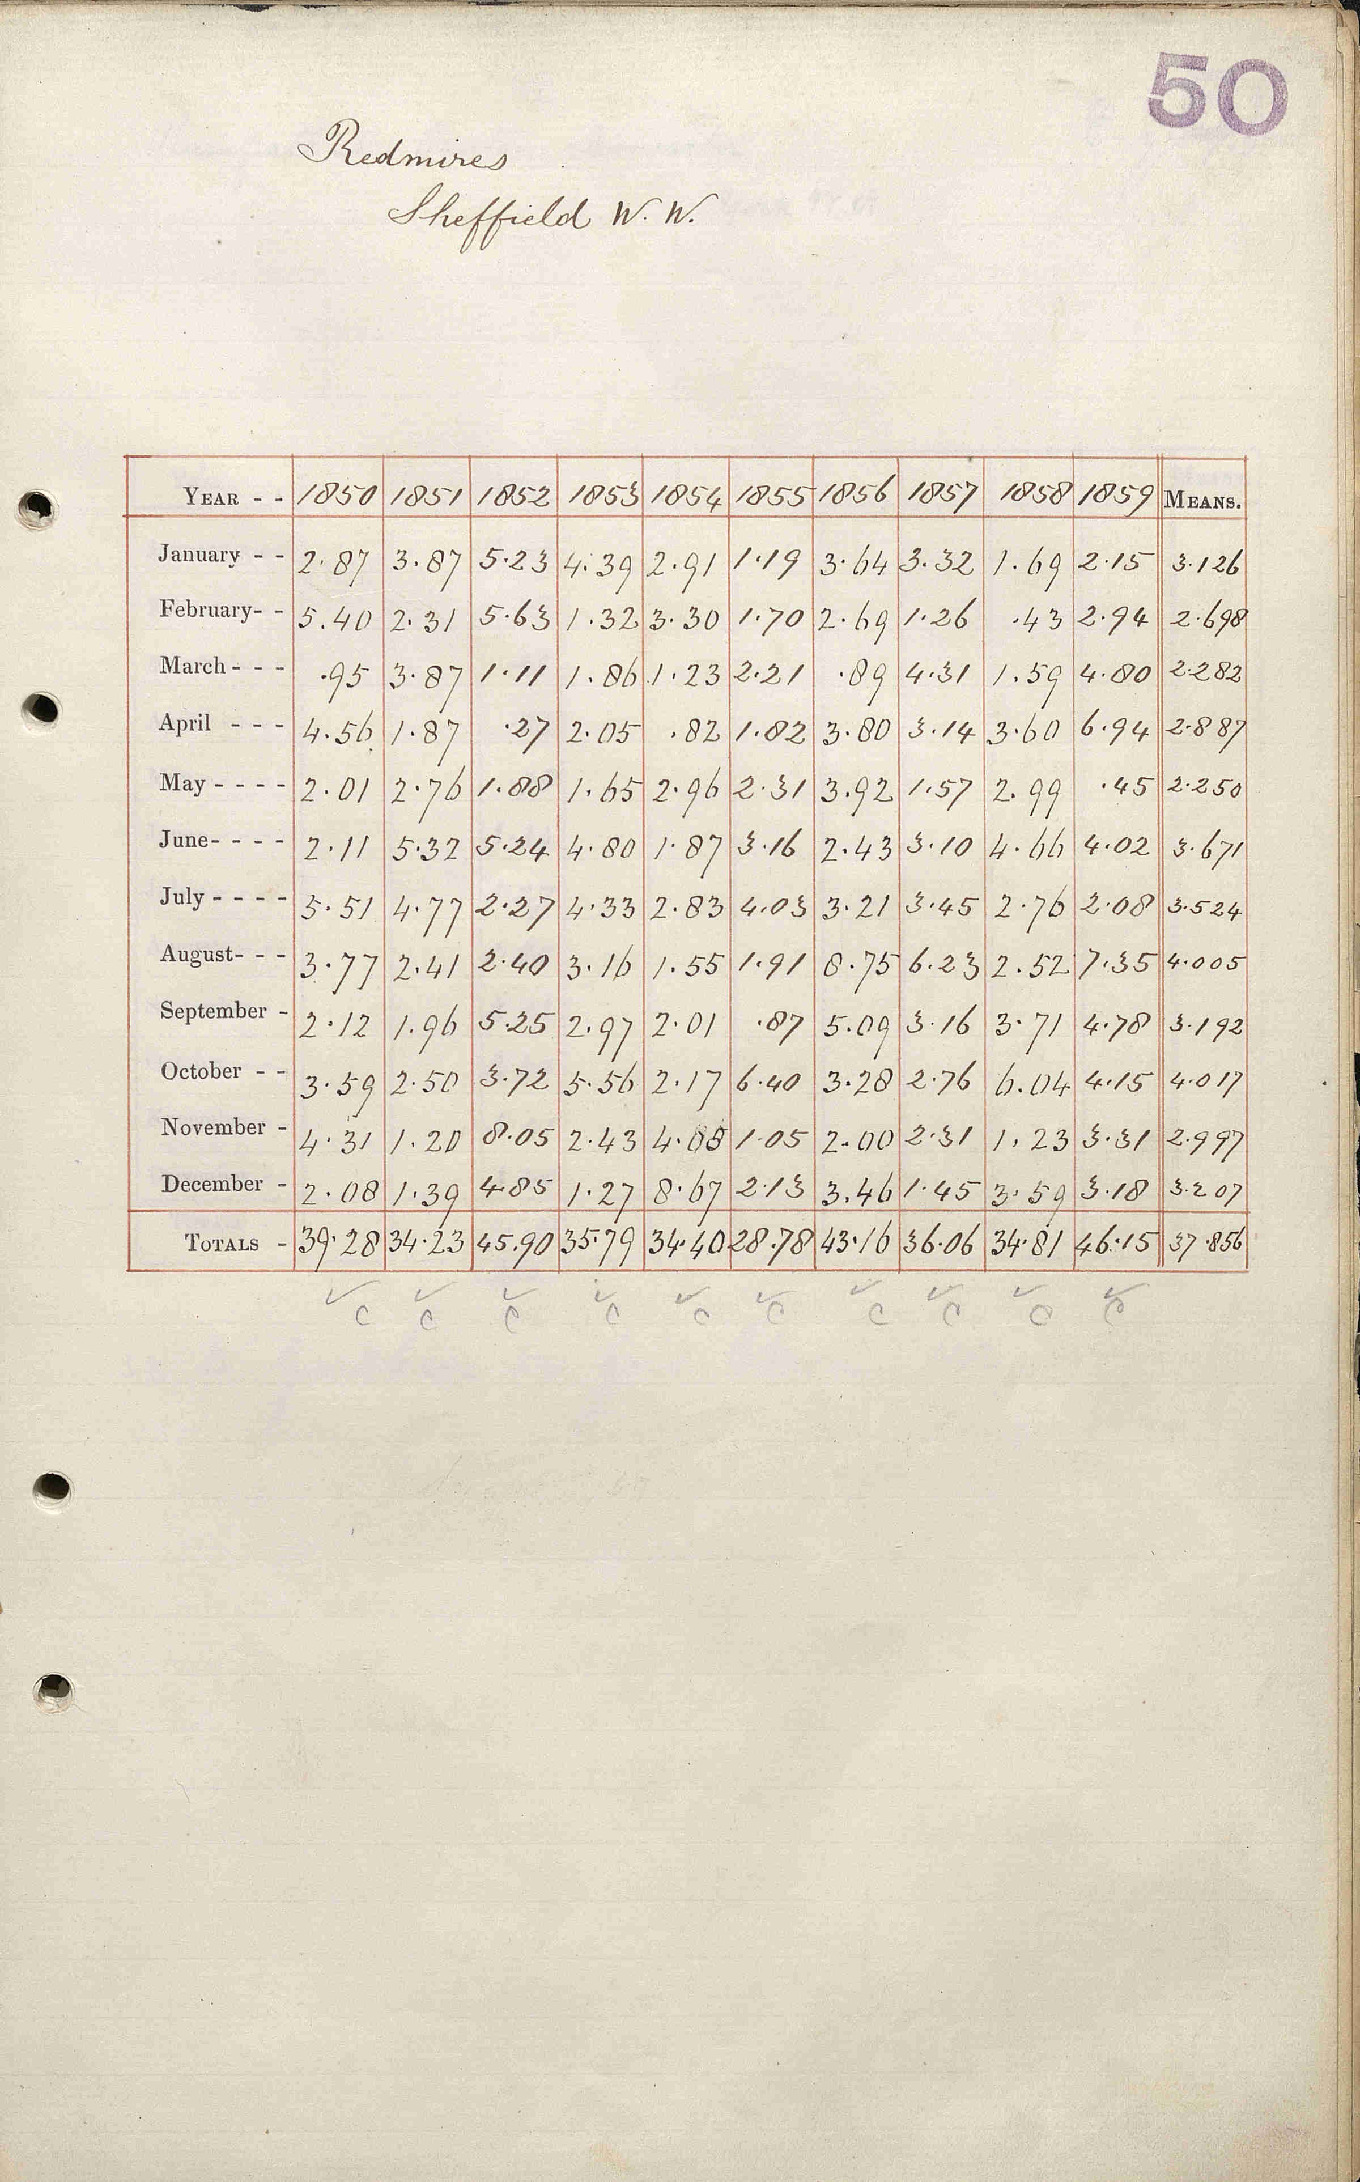 50
Redmires
Sheffield W. W.
YEAR - - 1850 1851 1852 1853 1854 1855 1856 1857 1858 1859 MEANS.
January - - 2.87 3.87 5.23 4.39 2.91 1.19 3.64 3.32 1.69 2.15 3.126
February- - 5.40 2.31 5.63 1.32 3.30 1.70 2.69 1.26 .43 2.94 2.698
March - - - .95 3.87 1.11 1.86 1.23 2.21 .89 4.31 1.59 4.80 2.282
April - - - 4.56 1.87 .27 2.05 .82 1.82 3.80 3.14 3.60 6.94 2.887
May - - - - 2.01 2.76 1.88 1.65 2.96 2.31 3.92 1.57 2.99 .45 2.250
June- - - - 2.11 5.32 5.24 4.80 1.87 3.16 2.43 3.10 4.66 4.02 3.671
July - - - - 5.51 4.77 2.27 4.33 2.83 4.03 3.21 3.45 2.76 2.08 3.524
August- - - 3.77 2.41 2.40 3.16 1.55 1.91 8.75 6.23 2.52 7.35 4.005
September - 2.12 1.96 5.25 2.97 2.01 .87 5.09 3.16 3.71 4.78 3.192
October - - 3.59 2.50 3.72 5.56 2.17 6.40 3.28 2.76 6.04 4.15 4.017
November - 4.31 1.20 8.05 2.43 4.08 1.05 2.00 2.31 1.23 3.31 2.997
December - 2.08 1.39 4.85 1.27 8.67 2.13 3.46 1.45 3.59 3.18 3.207
TOTALS - 39.28 34.23 45.90 35.79 34.40 28.78 43.16 36.06 34.81 46.15 37.856
✓ ✓ ✓ ✓ ✓ ✓ ✓ ✓ ✓ ✓
C C C C C C C C C C